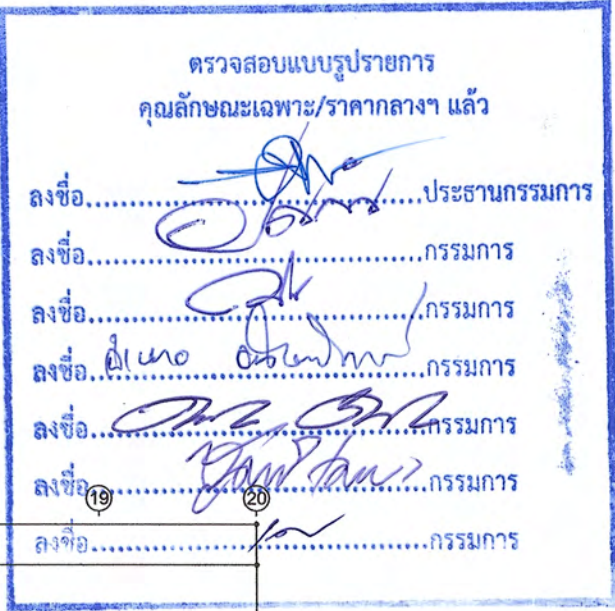 ตรวจสอบแบบรูปรายการ
คุณลักษณะเฉพาะ/ราคากลางฯ แล้ว
ลงชื่อ................................ประธานกรรมการ
ลงชื่อ................................กรรมการ
ลงชื่อ................................กรรมการ
ลงชื่อ................................กรรมการ
ลงชื่อ................................กรรมการ
ลงชื่อ................................กรรมการ
19 20
ลงชื่อ................................กรรมการ